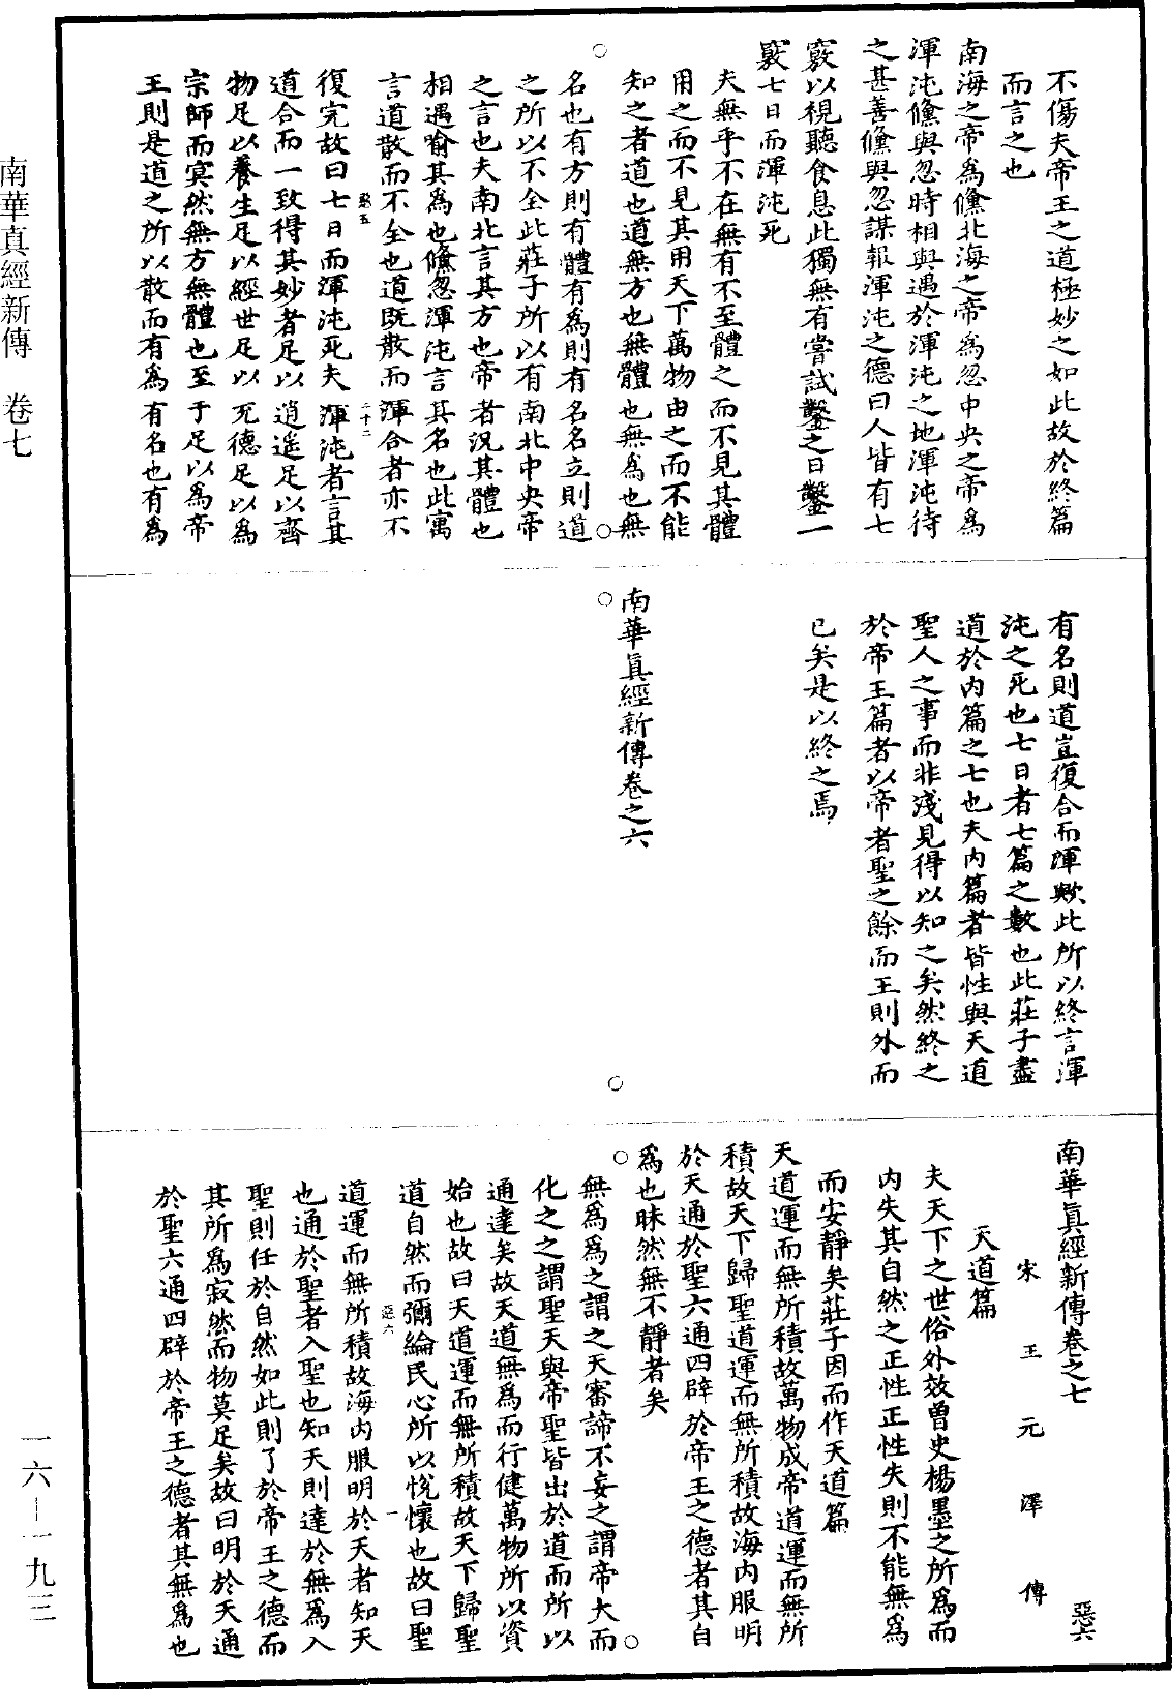 南華真經新傳　卷七
一六—一九三
不傷夫帝王之道極妙之如此故於終篇
而言之也
南海之帝爲儵北海之帝爲忽中央之帝爲
渾沌儵與忽時相與遇於渾沌之地渾沌待
之甚善儵與忽謀報渾沌之德曰人皆有七
竅以視聽食息此獨無有嘗試鑿之日鑿一
竅七日而渾沌死
夫無乎不在無有不至體之而不見其體
用之而不見其用天下萬物由之而不能
知之者道也道無方也無體也無爲也無
名也有方則有體有爲則有名名立則道
之所以不全此莊子所以有南北中央帝
之言也夫南北言其方也帝者況其體也
相遇喻其爲也儵忽渾沌言其名也此寓
言道散而不全也道既散而渾合者亦不
惡五
二十二
復完故曰七日而渾沌死夫渾沌者言其
道合而一致得其妙者足以逍遥足以齊
物足以養生足以經世足以充德足以爲
宗師而冥然無方無體也至于足以爲帝
王則是道之所以散而有爲有名也有爲
有名則道豈復合而渾歟此所以終言渾
沌之死也七日者七篇之數也此莊子盡
道於内篇之七也夫内篇者皆性與天道
聖人之事而非淺見得以知之矣然終之
於帝王篇者以帝者聖之餘而王則外而
已矣是以終之焉
南華真經新傳卷之六
南華真經新傳卷之七
惡六
宋王元澤傳
天道篇
夫天下之世俗外效曾史楊墨之所爲而
内失其自然之正性正性失則不能無爲
而安靜矣莊子因而作天道篇
天道運而無所積故萬物成帝道運而無所
積故天下歸聖道運而無所積故海内服明
於天通於聖六通四辟於帝王之德者其自
爲也昧然無不靜者矣
無爲爲之謂之天審諦不妄之謂帝大而
化之之謂聖天與帝聖皆出於道而所以
通達矣故天道無爲而行健萬物所以資
始也故曰天道運而無所積故天下歸聖
道自然而彌綸民心所以悅懷也故曰聖
惡六
一
道運而無所積故海内服明於天者知天
也通於聖者入聖也知天則達於無爲入
聖則任於自然如此則了於帝王之德而
其所爲寂然而物莫足矣故曰明於天通
於聖六通四辟於帝王之德者其無爲也